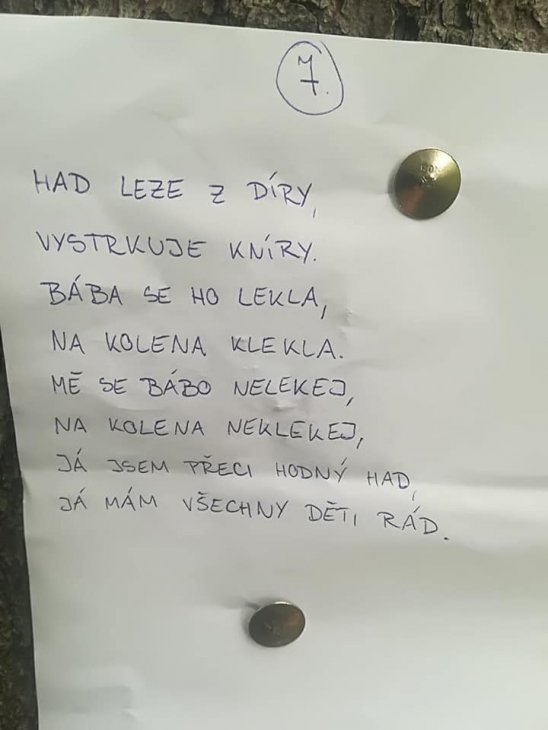 7.
HAD LEZE Z DÍRY,
VYSTRKUJE KNÍRY.
BÁBA SE HO LEKLA,
NA KOLENA KLEKLA.
MĚ SE BÁBO NELEKEJ,
NA KOLENA NEKLEKEJ,
JÁ JSEM PŘECI HODNÝ HAD,
JÁ MÁM VŠECHNY DĚTI RÁD.